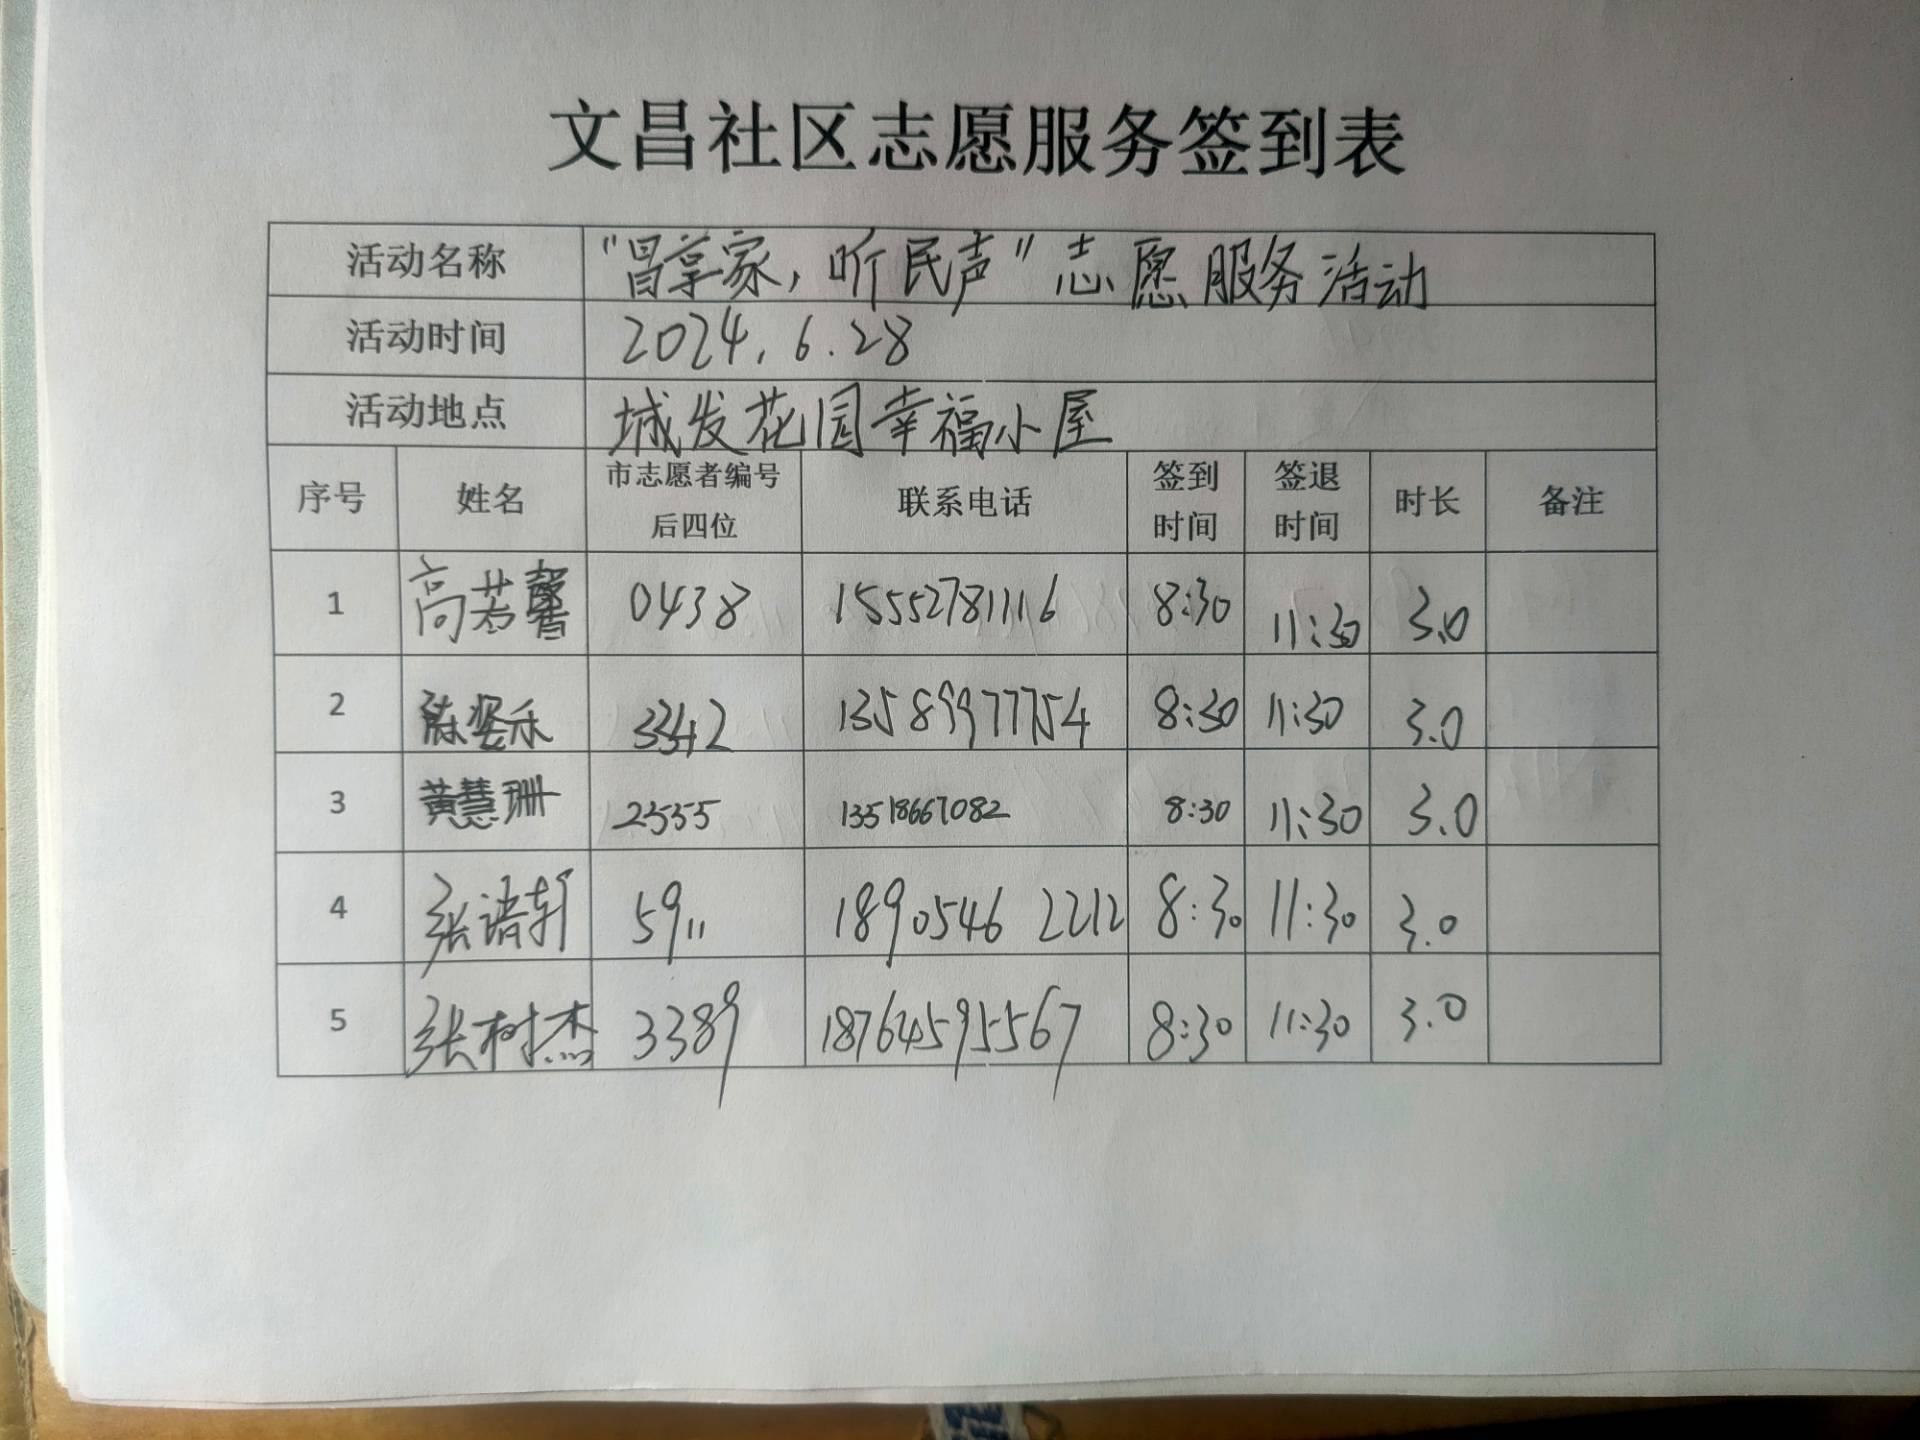 文昌社区志愿服务签到表
活动名称 “昌享家，听民声”志愿服务活动
活动时间 2024.6.28
活动地点 城发花园幸福小屋
序号 姓名 市志愿者编号后四位 联系电话 签到时间 签退时间 时长 备注
1 高若馨 0438 15552781116 8:30 11:30 3.0
2 陈姿禾 3342 13589977754 8:30 11:30 3.0
3 黄慧珊 2555 13518667082 8:30 11:30 3.0
4 张语轩 5911 18905462212 8:30 11:30 3.0
5 张树杰 3389 18764595567 8:30 11:30 3.0